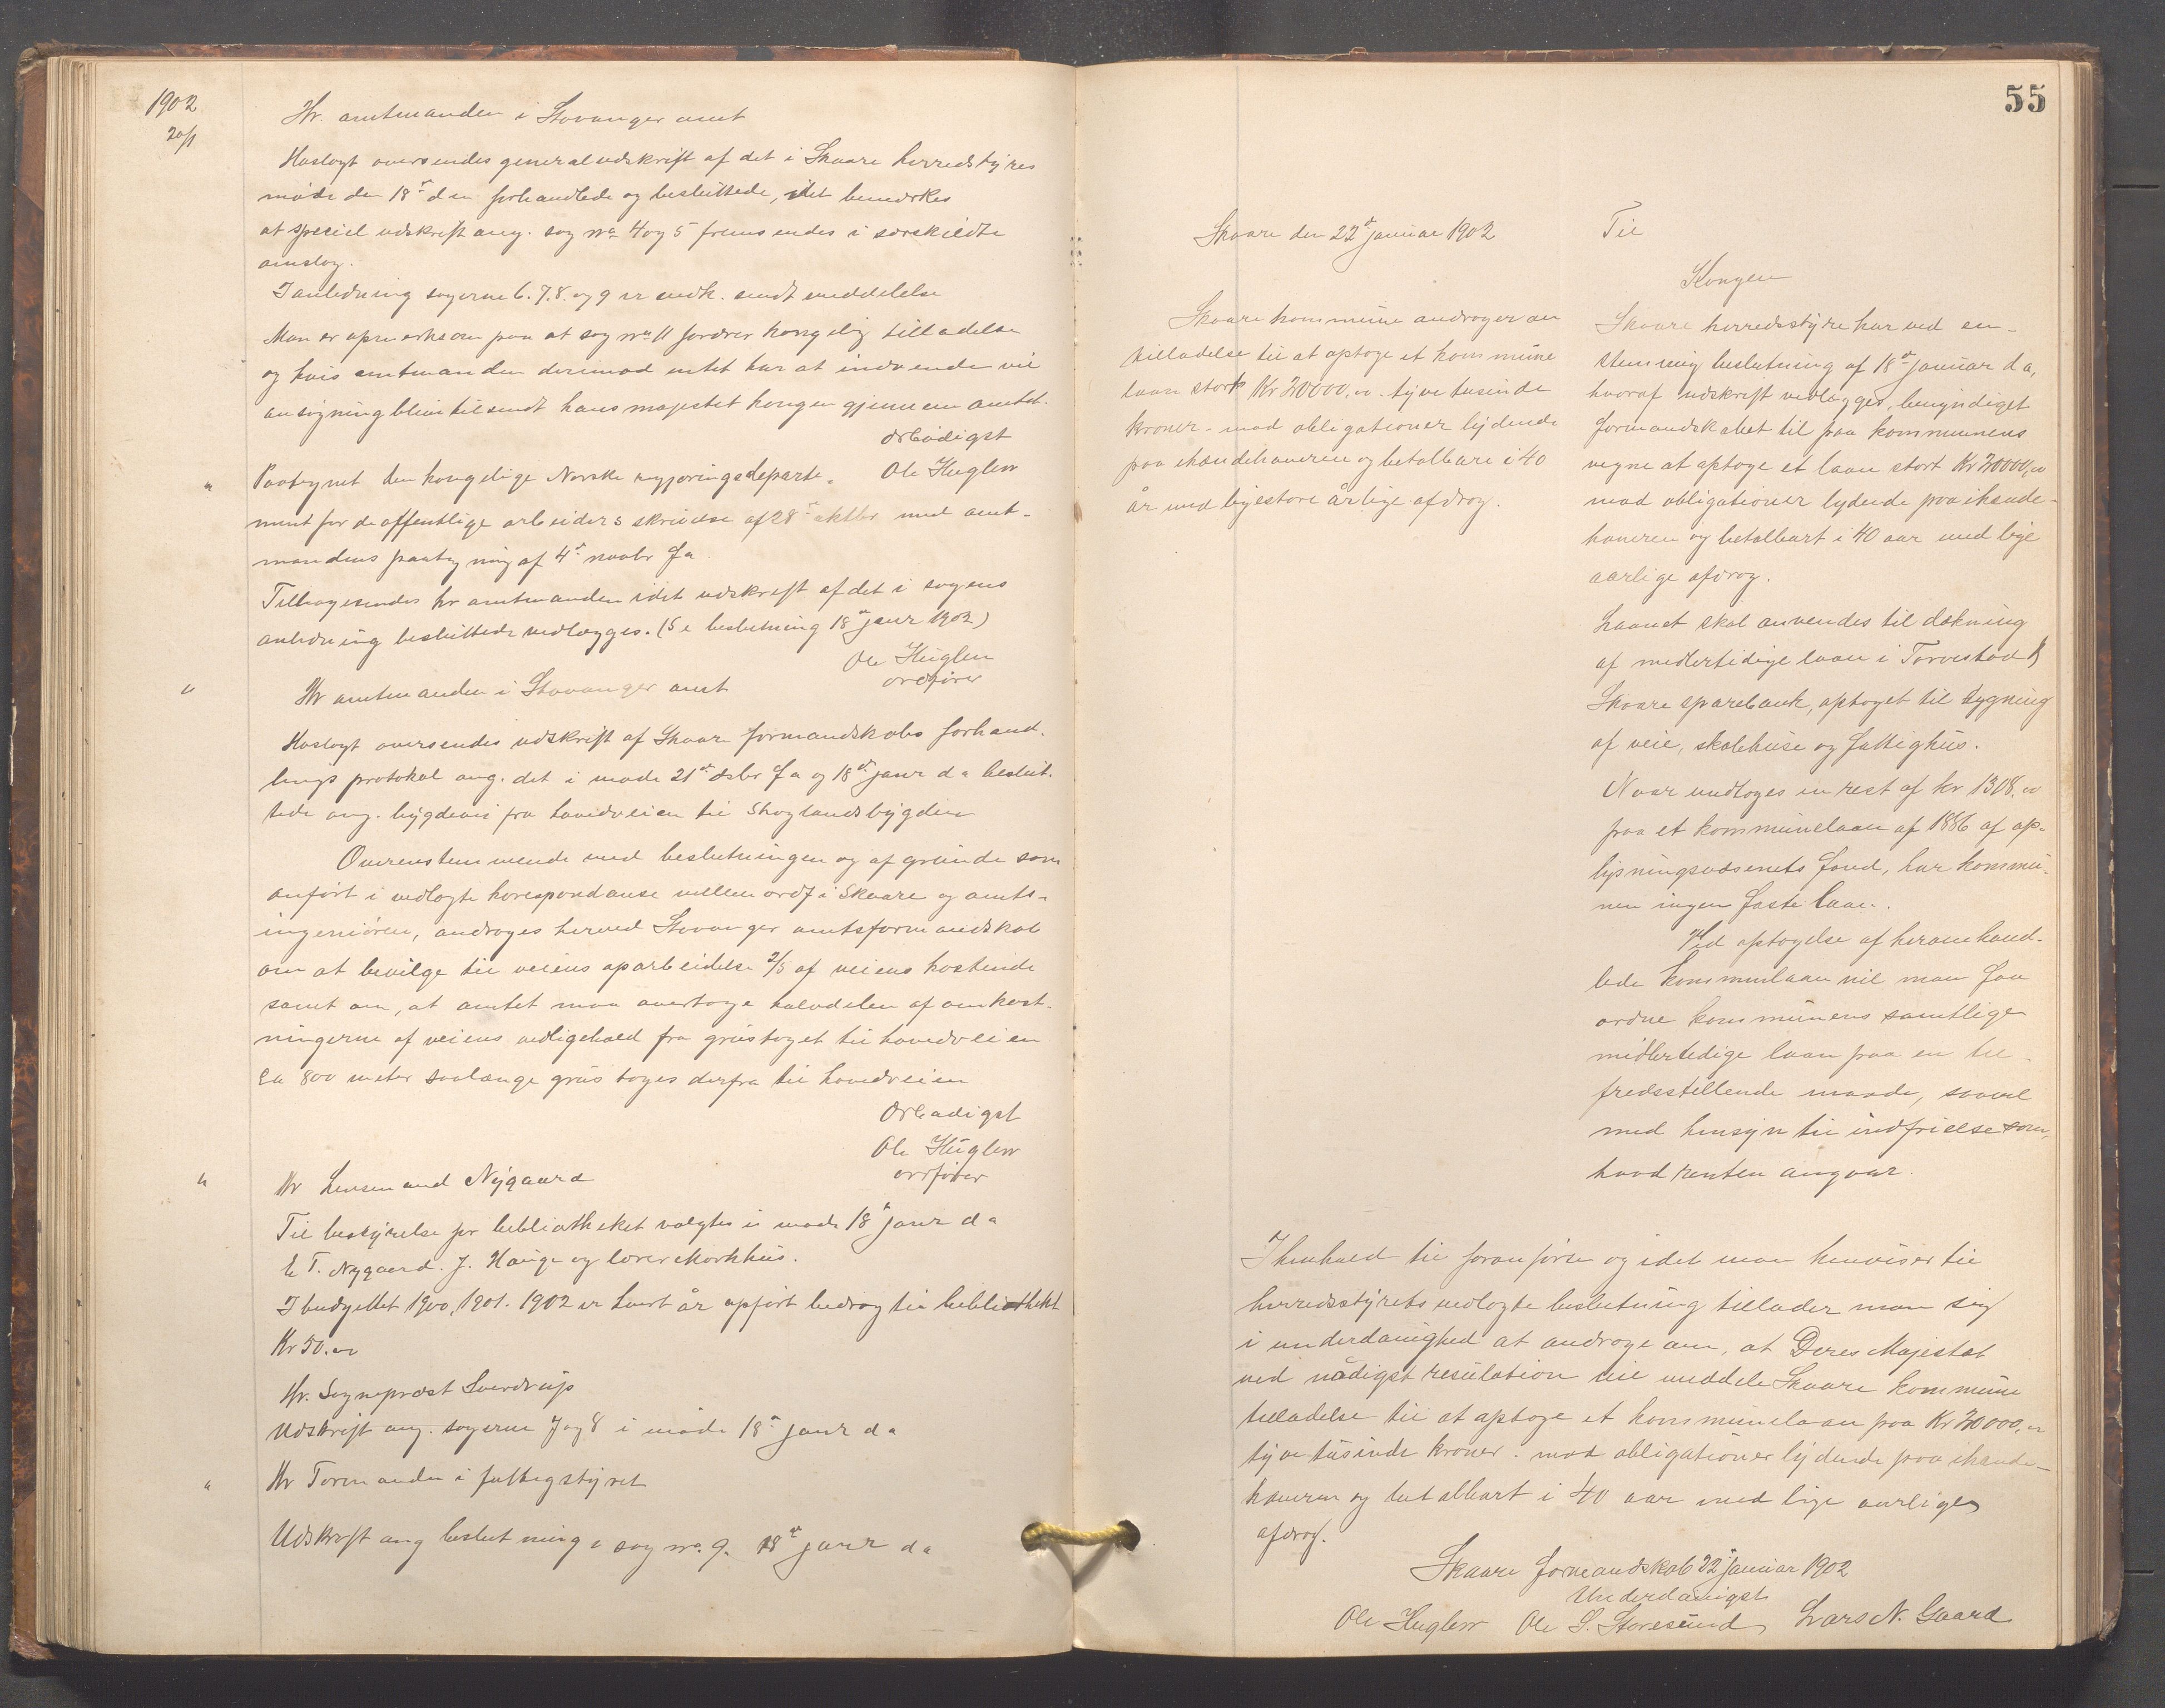 1902
20/1
Hr. amtmanden i Stavanger amt
Høslagt oversendes generaludskrift af det i Skaare herredstyres
møde den 18de dm forhandlede og besluttede, idet bemærkes
at speciel udskrift ang. sag no 4 og 5 fremsendes i særskildte
omslag.
I anledning sagerne 6. 7. 8. og 9 er vedk. sendt meddelelse
Man er opmerksom paa at sag no 11 fordrer kongelig tilladelse
og hvis amtmanden derimod intet har at indvende vil
ansøgning blive tilsendt hans majestet kongen gjennem amtet.
ærbødigst
Ole Huglen
" Paategnet den kongelige Norske regjeringsdeparte-
ment for de offentlige arbeiders skrivelse af 28de oktbr med amt-
mandens paategning af 4de novbr f a
Tilbagesendes hr amtmanden idet udskrift af det i sagens
anledning besluttede vedlægges. (Se beslutning 18de janr 1902)
Ole Huglen
ordfører
" Hr amtmanden i Stavanger amt
Høslagt oversendes udskrift af Skaare formandskabs forhand-
lings protokol ang. det i møde 21de dsbr f a og 18de janr d a beslut-
tede ang. bygdevei fra hovedveien til Skoglandsbygden
Overenstemmende med beslutningen og af grunde som
anført i vedlagte korespondanse mellem ordf i Skaare og amts-
ingeniøren, andrages herved Stavanger amtsformandskab
om at bevilge til veiens oparbeidelse 2/5 af veiens kostende
samt om, at amtet maa overtage halvdelen af omkost-
ningerne af veiens vedligehold fra grustaget til hovedveien
ca 800 meter saalænge grus tages derfra til hovedveien
ærbødigst
Ole Huglen
ordfører
" Hr Lensmand Nygaard
Til bestyrelse for bibliotheket valgtes i møde 18de janr d a
E T. Nygaard. J. Hauge og lærer Mørkhus.
I budgettet 1900, 1901. 1902 er hvert år opført bedrag til bibliotheket
Kr 50.00
Hr. Sogneprest Sverdrup
Udskrift ang. sagerne 7 og 8 i møde 18de janr d a
" Hr Formanden i fattigstyret
Udskrift ang beslutning i sag no. 9. 18de janr d a
55
Skaare den 22de januar 1902
Skaare kommune andrager om
tilladelse til at optage et kommune
laan stort Kr 20000,00 - tyve tusinde
kroner - mod obligationer lydende
paa ihændehaveren og betalbare i 40
år med ligestore årlige afdrag.
Til
Kongen
Skaare herredsstyre har ved en-
stemmig beslutning af 18de januar d a,
hvoraf udskrift vedlægges, bemyndiget
formandskabet til paa kommunens
vegne at optage et laan stort Kr 20000,00
mod obligationer lydende paa ihænde-
haveren og betalbart i 40 aar med lige
aarlige afdrag.
Laanet skal anvendes til dækning
af midlertidige laan i Torvestad &
Skaare sparebank, optaget til bygning
af veie, skolehuse og fattighus.
Naar undtages en rest af kr 1308.00
paa et kommunelaan af 1886 af op-
lysningsvæsenets fond, har kommu-
nen ingen faste laan.
Ved optagelse af heromhand-
lede kommunlaan vil man faa
ordne kommunens samtlige
midlertidige laan paa en til-
fredsstillende maade, saavel
med hensyn til indfrielse som,
hvad renten angaar.
I henhold til foranførte og idet man henviser til
herredsstyrets vedlagte beslutning tillader man sig
i underdanighed at andrage om, at Deres Majestæt
ved nådigst resulation vil meddele Skaare kommune
tilladelse til at optage et kommunelaan paa Kr 20000,00
tyve tusinde kroner - mod obligationer lydende paa ihænde-
haveren og betalbart i 40 aar med lige aarlige
afdrag.
Skaare formandskab 22 januar 1902
Underdanigst
Ole Huglen Ole G. Storesund Lars N. Gaard